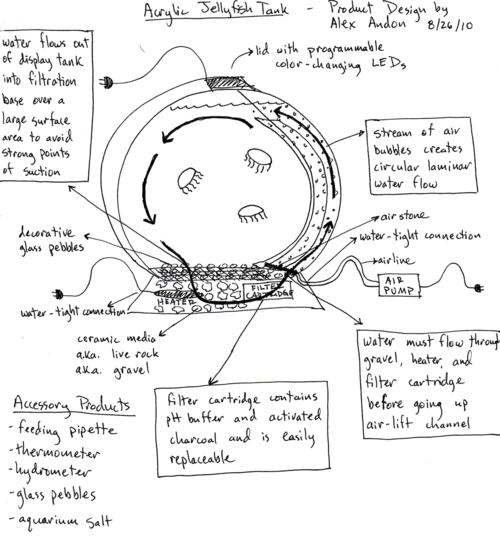 Acrylic Jellyfish Tank - Product Design by
Alex Andon 8/26/10
water flows out
of display tank
into filtration
base over a
large surface
area to avoid
strong points
of suction
lid with programmable
color-changing LEDs
stream of air
bubbles creates
circular laminar
water flow
decorative
glass pebbles
air stone
water-tight connection
airline
AIR
PUMP
HEATER
FILTER
CARTRIDGE
water-tight connection
ceramic media
a.k.a. live rock
a.k.a. gravel
water must flow through
gravel, heater, and
filter cartridge
before going up
air-lift channel
filter cartridge contains
pH buffer and activated
charcoal and is easily
replaceable
Accessory Products
-feeding pipette
-thermometer
-hydrometer
-glass pebbles
-aquarium salt